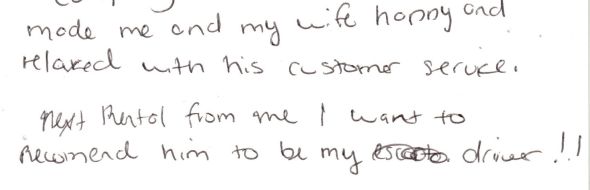 made me and my wife happy and
relaxed with his customer service.
Next Rental from me I want to
Recomend him to be my driver!!